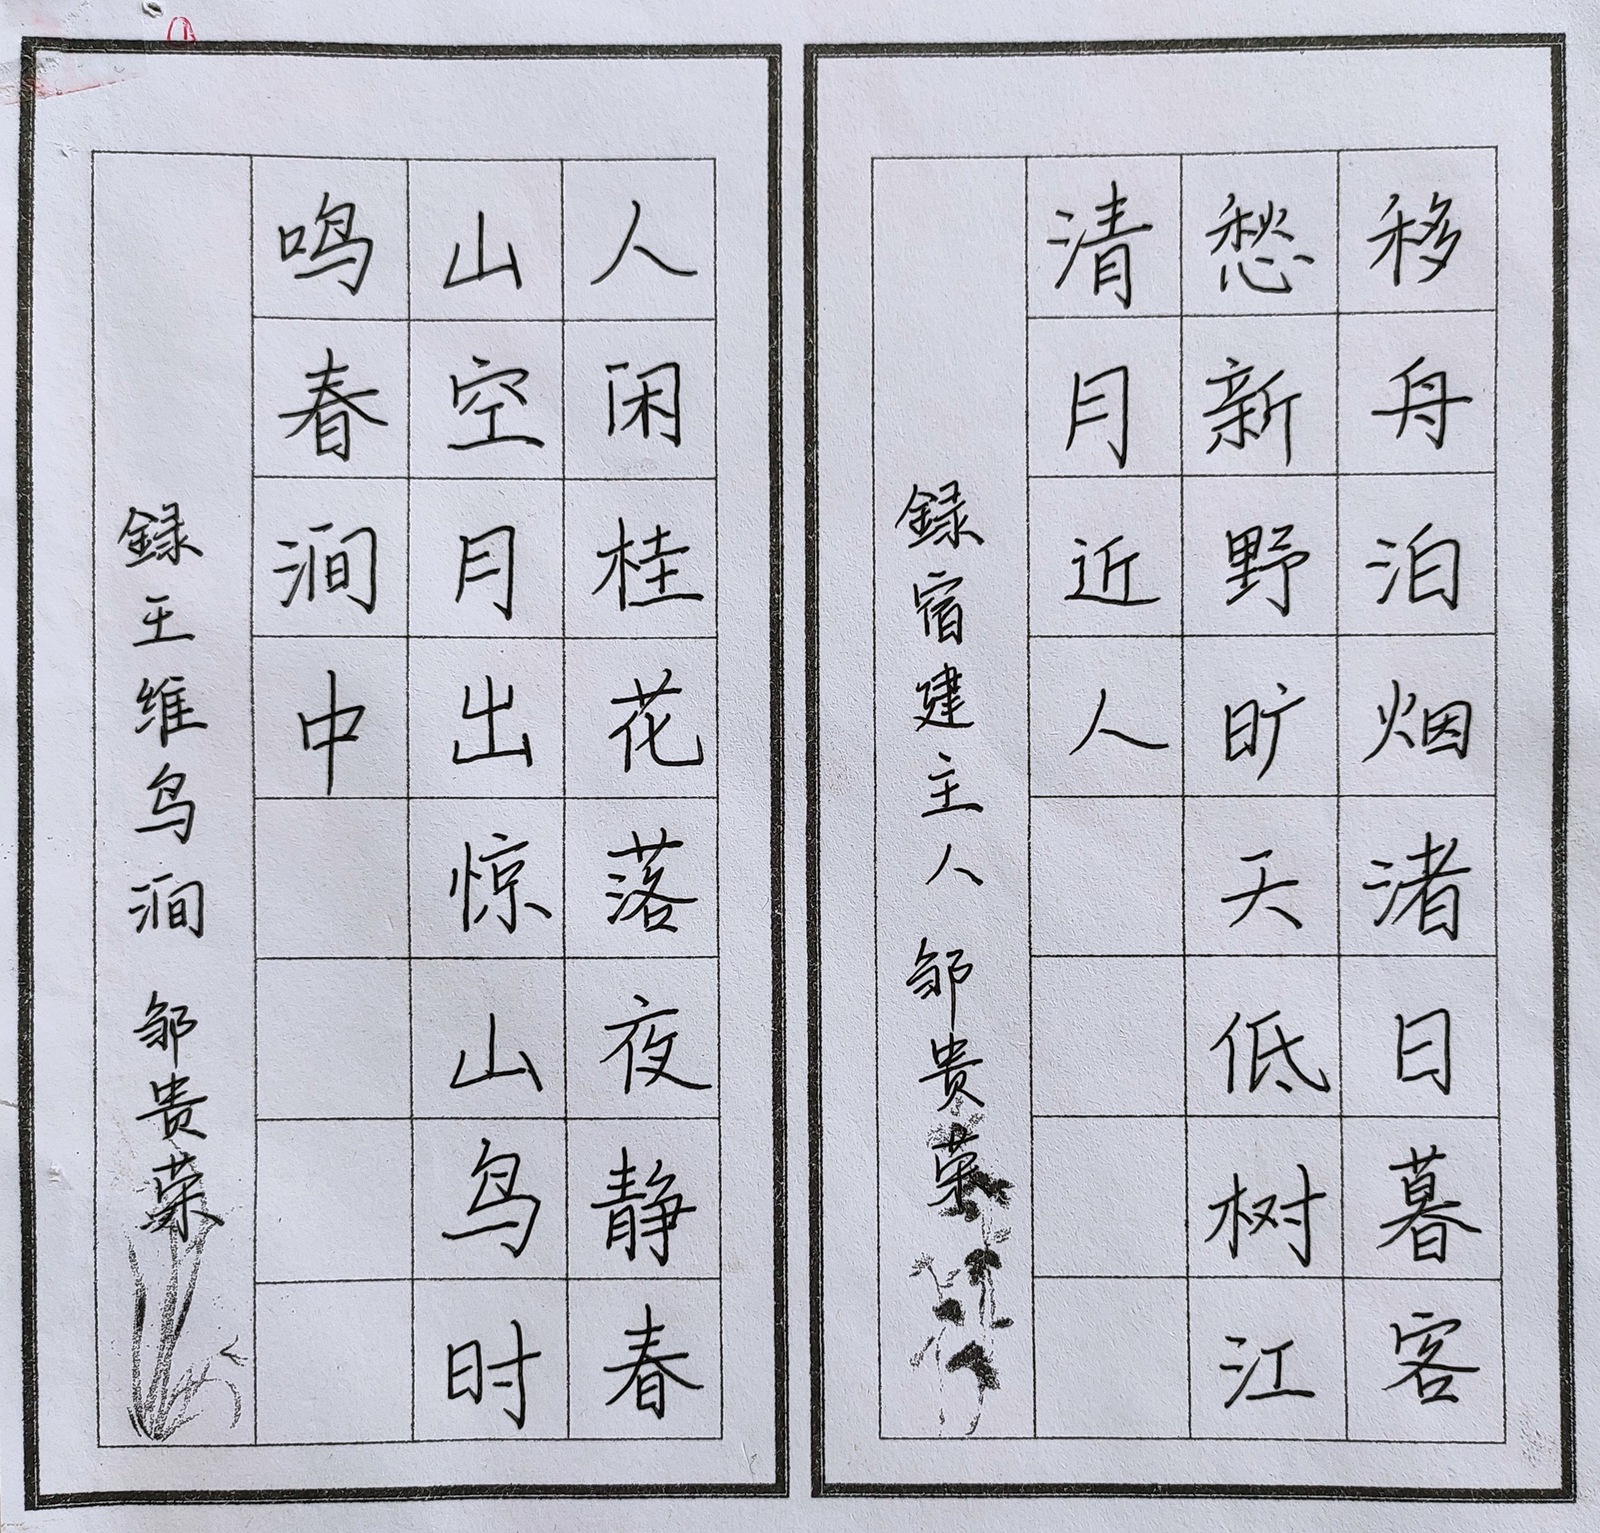 移舟泊烟渚日暮客
愁新野旷天低树江
清月近人
録宿建主人 邹贵荣
人闲桂花落夜静春
山空月出惊山鸟时
鸣春涧中
録王维鸟涧 邹贵荣